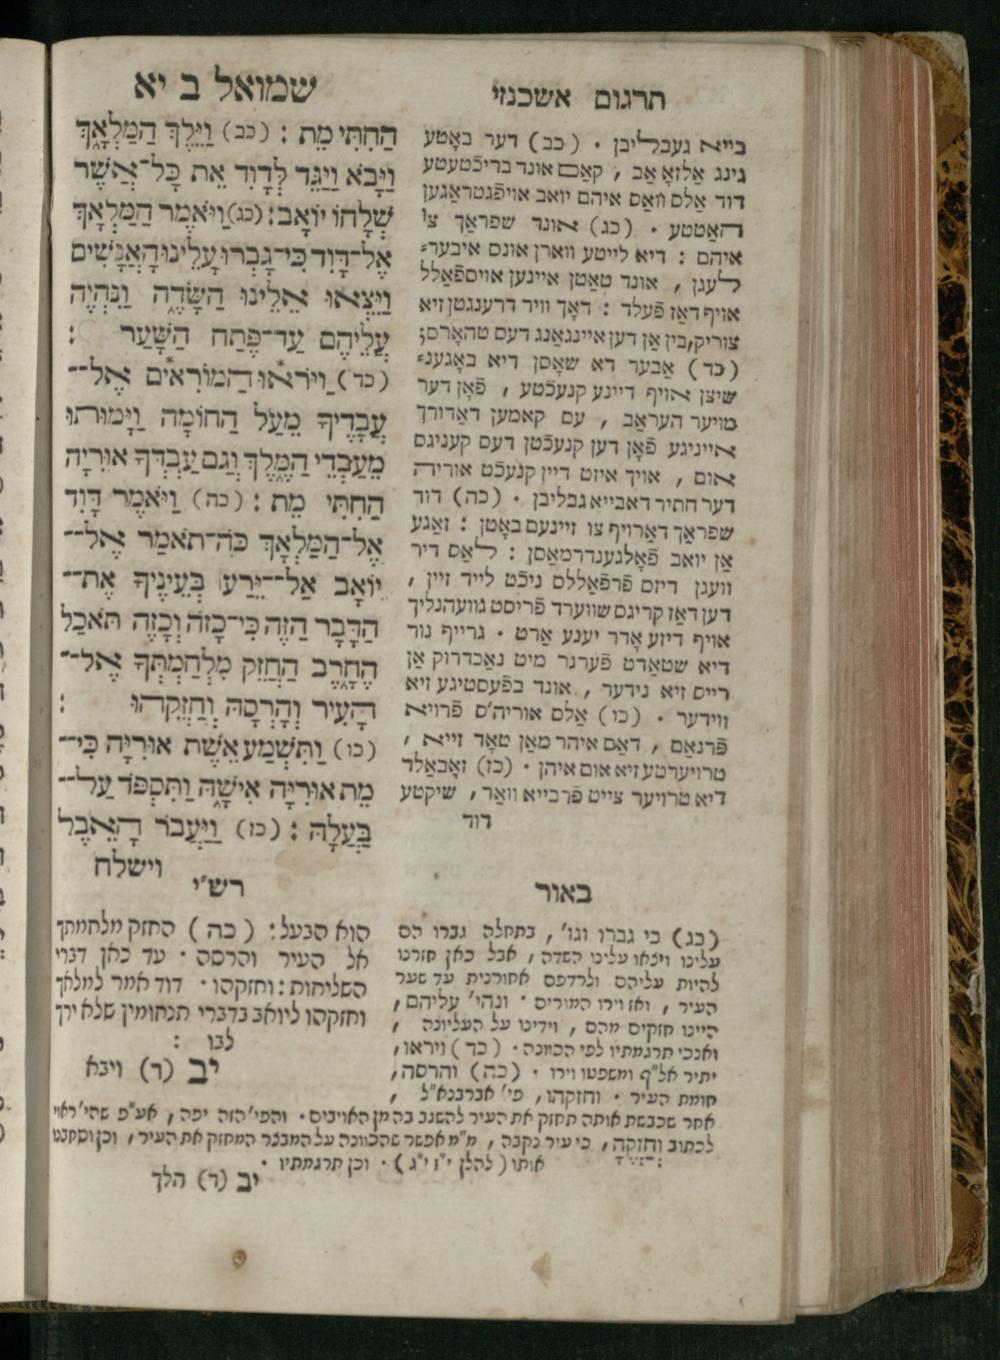 שמואל ב יא
החתי מת : (כב) וַיֵּלֶךְ הַמַּלְאָךְ
וַיָּבֹא וַיַּגֵּד לְדָוִד אֵת כָּל־אֲשֶׁר
שְׁלָחוֹ יוֹאָב : (כג) וַיֹּאמֶר הַמַּלְאָךְ
אֶל־דָּוִד כִּי־גָבְרוּ עָלֵינוּ הָאֲנָשִׁים
וַיֵּצְאוּ אֵלֵינוּ הַשָּׂדֶה וַנִּהְיֶה
עֲלֵיהֶם עַד־פֶּתַח הַשָּׁעַר :
(כד) וַיֹּרְאוּ הַמּוֹרְאִים אֶל־
עֲבָדֶיךָ מֵעַל הַחוֹמָה וַיָּמוּתוּ
מֵעַבְדֵי הַמֶּלֶךְ וְגַם עַבְדְּךָ אוּרִיָּה
הַחִתִּי מֵת : (כה) וַיֹּאמֶר דָּוִד
אֶל־הַמַּלְאָךְ כֹּה־תֹאמַר אֶל־
יוֹאָב אַל־יֵרַע בְּעֵינֶיךָ אֶת־
הַדָּבָר הַזֶּה כִּי־כָזֹה וְכָזֶה תֹּאכַל
הֶחָרֶב הַחֲזֵק מִלְחַמְתְּךָ אֶל־
הָעִיר וְהָרְסָהּ וְחַזְּקֵהוּ :
(כו) וַתִּשְׁמַע אֵשֶׁת אוּרִיָּה כִּי־
מֵת אוּרִיָּה אִישָׁהּ וַתִּסְפֹּד עַל־
בַּעְלָהּ : (כז) וַיַּעֲבֹר הָאֵבֶל
וישלח
תרגום אשכנזי
בייא געבליבן . (כב) דער באָטע
גינג אַלזאָ אַב , קאַם אונד בריכֿטעטע
דוד אַלם וואַס איהם יואב אויפֿגטראַגען
האַטטע . (כג) אונד שפראַך צו
איהם : דיא לייטע ווארן אונס איבער=
לעגן , אונד טאַטן איינען אויספֿאַלל
אויף דאַז פֿעלד : דאָך וויר דרענגטן זיא
צוריק, בין אַן דען איינגאַנג דעס טהאָרם ;
(כד) אַבער דא שאָסן דיא באָגענ=
שיצן אויף דיינע קנעכֿטע , פֿאָן דער
מויער העראַב , עס קאמען דאַדורך
אייניגע פֿאָן דען קנעכֿטן דעס קעניגם
אום , אויך איזט דיין קנעכֿט אוריה
דער חתיר דאבייא גבליבן . (כה) דוד
שפראך דאַרויף צו זיינעם באָטן : זאַגע
אַן יואב פֿאָלגענדרמאַסן : לאַס דיר
וועגן דיזם פֿרפֿאַללם ניכֿט לייד זיין ,
דען דאַז קריגם שווערד פֿריסט געוועהנליך
אויף דיזע אָדר יענע אַרט . גרייף נור
דיא שטאַדט פֿערנר מיט נאַכדרוק אַן
רייס זיא נידער , אונד בפֿעסטיגע זיא
ווידער . (כו) אַלם אוריה'ס פֿרויא
פֿרנאַם , דאַס איהר מאַן טאָד זייא ,
טרויערטע זיא אום איהן . (כז) זאָבאַלד
דיא טרויער צייט פֿרבייא וואַר , שיקטע
דוד
רש"י
הוא הבעל : (כה) החזק מלחמתך
אל העיר והרסה . עד כאן דברי
השליחות : וחזקהו . דוד אמר למלאך
וחזקהו ליואב בדברי תנחומין שלא ירך
לבו :
יב (ד) ויבא
באור
(כג) כי גברו וגו' , בתחלה גברו הם
עלינו ויצאו עלינו השדה , אבל כאן חזרנו
להיות עליהם ולרדפם אחורנית עד שער
העיר , ואז וירו המורים . ונהי' עליהם ,
היינו חזקים מהם , וידינו על העליונה ,
ואנכי תרגמתיו לפי הכוונה . (כד) ויראו ,
יתיר אל"ף ומשפטו וירו . (כה) והרסה ,
חומת העיר . וחזקהו , פי' אברבנא"ל ,
אחר שכבשת אותה תחזק את העיר להשגב בה מן האויבים . והפי' הזה יפה , אע"פ שהי' ראוי
לכתוב וְחַזְּקֶהָ , כי עיר נקבה , מ"מ אפשר שהכוונה על המבצר המחזק את העיר , וכן וסחבנו
אותו (להלן י"ז י"ג) . וכן תרגמתיו .
יב (ד) הלך